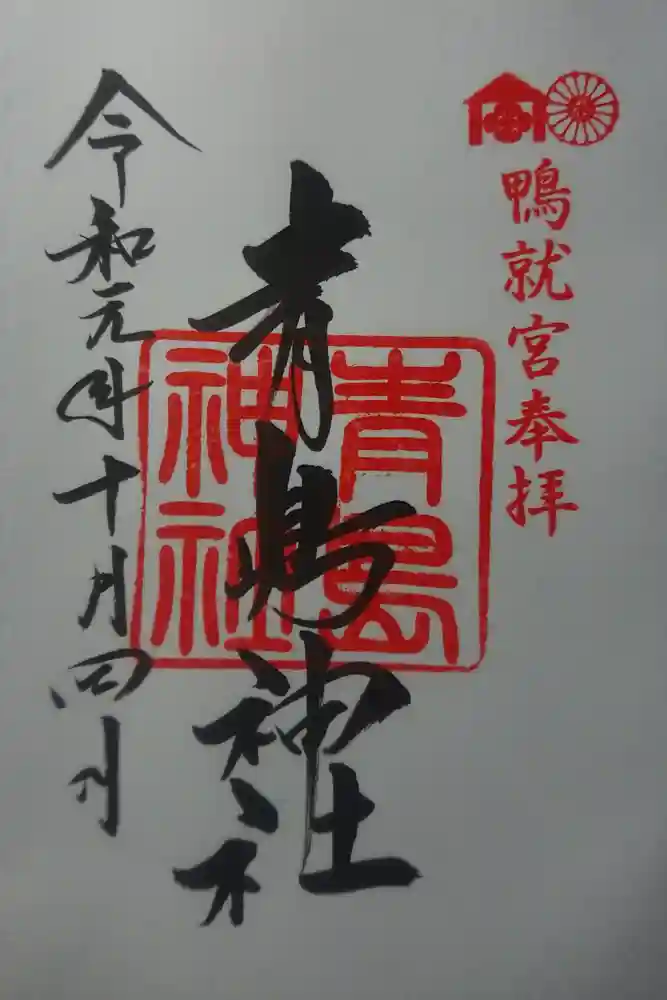 鴨就宮奉拝
青島神社
青島神社
令和元年十月四日